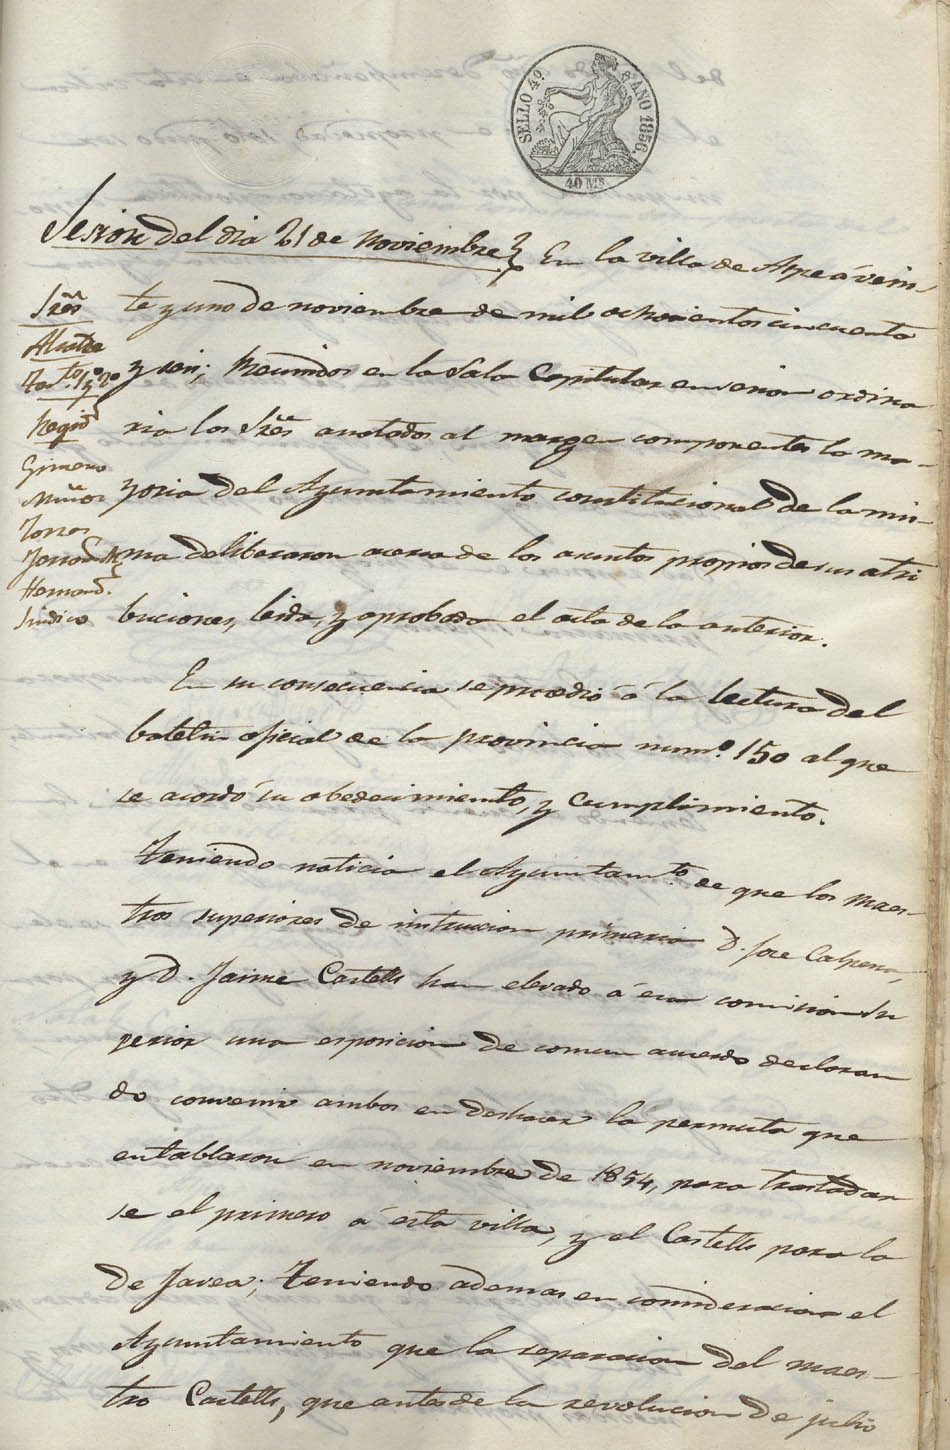 SELLO 4º. AÑO 1856.
40 Ms
Sesion del dia 21 de Noviembre } En la villa de Aspe á vein-
te y uno de noviembre de mil ochocientos cincuenta
y seis; Reunidos en la Sala Capitular en sesion ordina
ria los Sres anotados al margen componentes la ma-
yoria del Ayuntamiento constitucional de la mis-
ma deliberaron acerca de los asuntos propios de sus atri
buciones, leida, y aprobada el acta de la anterior.
Sres
Alcalde
Tente. 1º y 2º
Regid
Gimeno
Muñoz
Torres
Hernand.
Sindico
En su consecuencia se procedió á la lectura del
boletin oficial de la provincia numº. 150 al que
se acordó su obedecimiento, y cumplimiento.
Teniendo noticia el Ayuntamto. de que los maes-
tros superiores de instruccion primaria D. Jose Calpena,
y D. Jaime Castells han elevado á esa comision Su
perior una esposicion de comun acuerdo declaran
do convenir ambos en deshacer la permuta que
entablaron en noviembre de 1854, para trasladar
se el primero á esta villa, y el Castells para la
de Javea; Teniendo ademas en consideracion el
Ayuntamiento que la separacion del maes-
tro Castells, que antes de la revolucion de julio